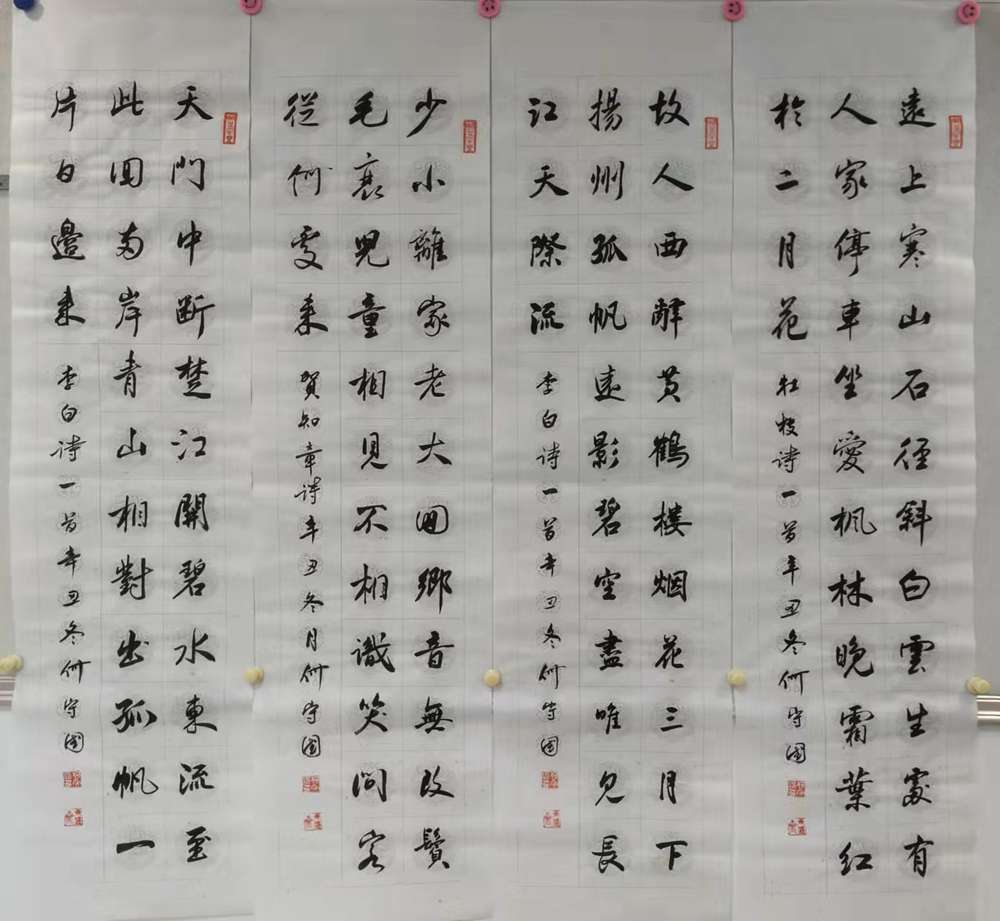 遠上寒山石径斜白雲生處有
人家停車坐愛楓林晚霜葉紅
於二月花 杜牧诗一首辛丑冬何守國
故人西辭黄鶴樓烟花三月下
揚州孤帆遠影碧空盡唯見長
江天際流 李白诗一首辛丑冬何守國
少小離家老大回鄉音無改鬢
毛衰兒童相見不相識笑問客
從何處来 賀知章诗辛丑冬月何守國
天門中断楚江開碧水東流至
此回两岸青山相對出孤帆一
片日邊来 李白诗一首辛丑冬何守國